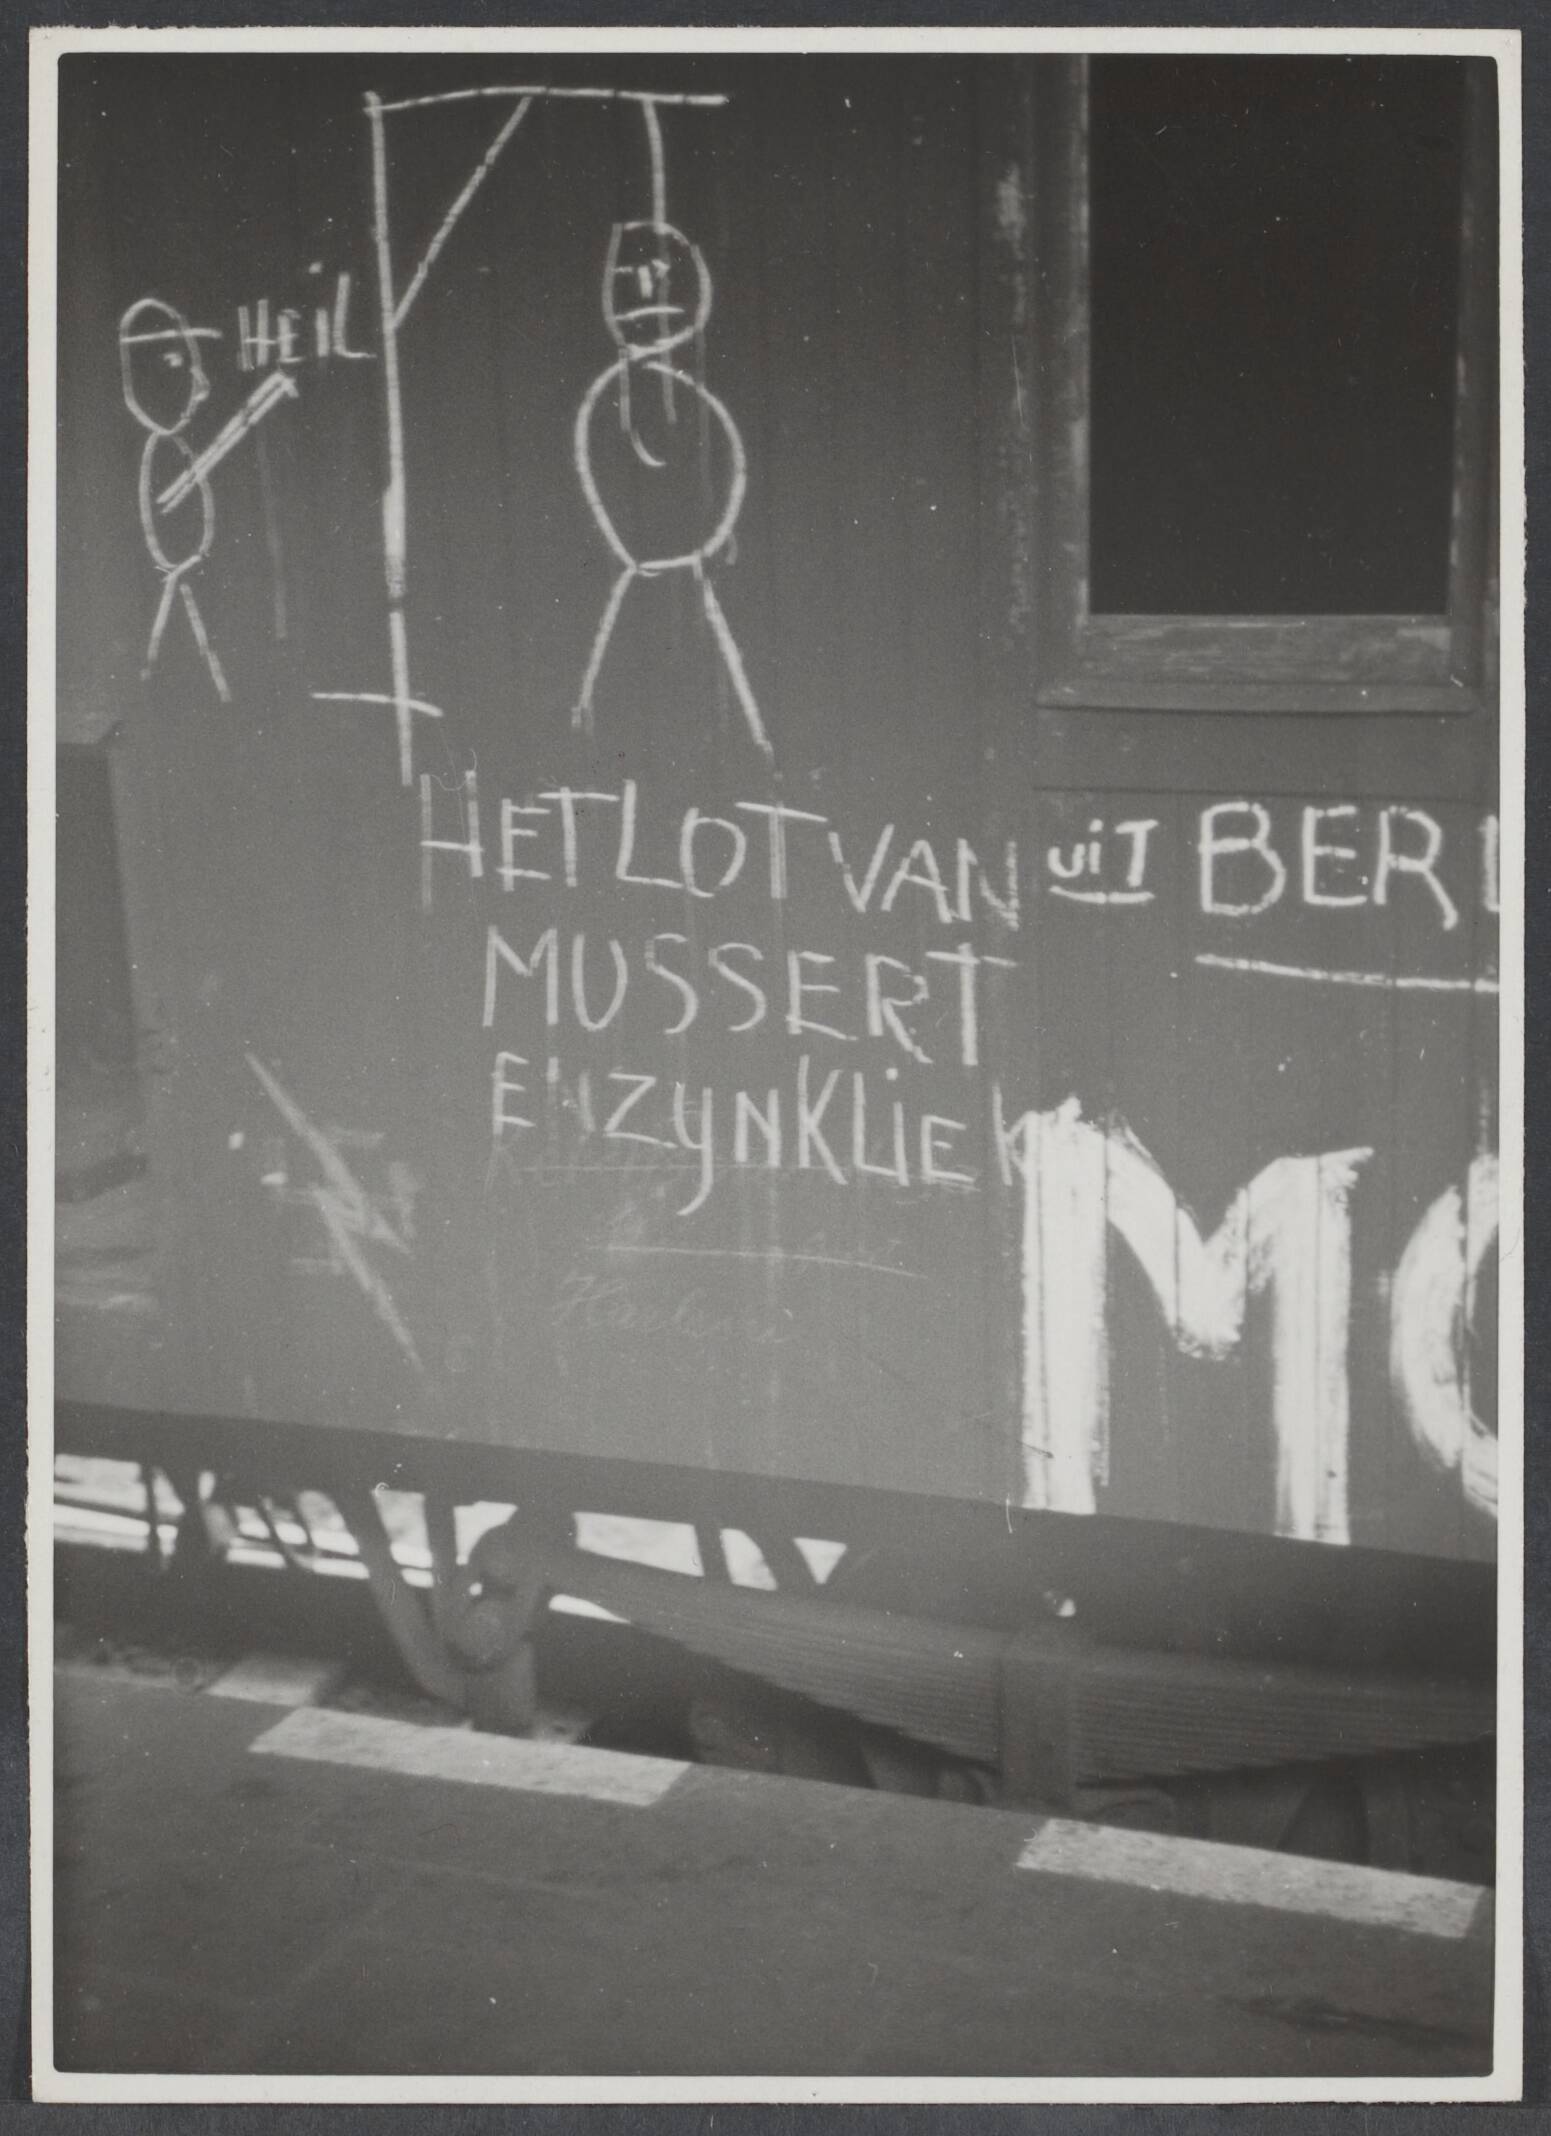 HEIL
HET LOT VAN
MUSSERT
EN ZYN KLIEK
uiT BERL
MO